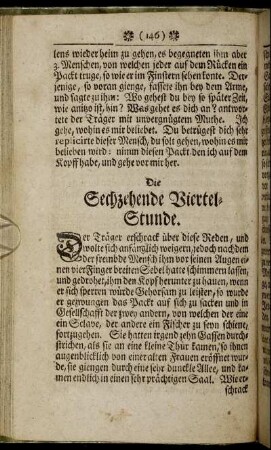 (146)
lens wieder heim zu gehen, es begegneten ihm aber
3. Menschen, von welchen jeder auf dem Rücken ein
Packt truge, so wie er im Finstern sehen konte. Der-
jenige, so voran gienge, fassete ihn bey dem Arme,
und sagte zu ihm: Wo gehest du hey so später Zeit,
wie anitzo ist, hin? Was gehet es dich an? antwor-
tete der Träger mit unvergnügtem Muthe. Ich
gehe, wohin es mir beliebet. Du betrügest dich sehr
replicirte dieser Mensch, du solt gehen, wohin es mir
belieben wird: nimm diesen Packt den ich auf dem
Kopff habe, und gehe vor mir her.
Die
Sechzehende Viertel-
Stunde.
Der Träger erschrack über diese Reden, und
wolte sich anfänglich weigern, jedoch nachdem
der frembde Mensch ihm vor seinen Augen ei-
nen vier Finger breiten Sebel hatte schimmern lassen,
und gedrohet, ihm den Kopff herunter zu hauen, wenn
er sich sperren würde Gehorsam zu leisten, so wurde
er gezwungen das Packt auf sich zu sacken und in
Gesellschafft der zwey andern, von welchen der eine
ein Sclave, der andere ein Fischer zu seyn schiene,
fortzugehen. Sie hatten irgend zehn Gassen durch-
strichen, als sie an eine kleine Thür kamen, so ihnen
augenblicklich von einer alten Frauen eröffnet wur-
de, sie giengen durch eine sehr dunckle Allee, und ka-
men endlich in einen sehr prächtigen Saal. Wie er-
schrack